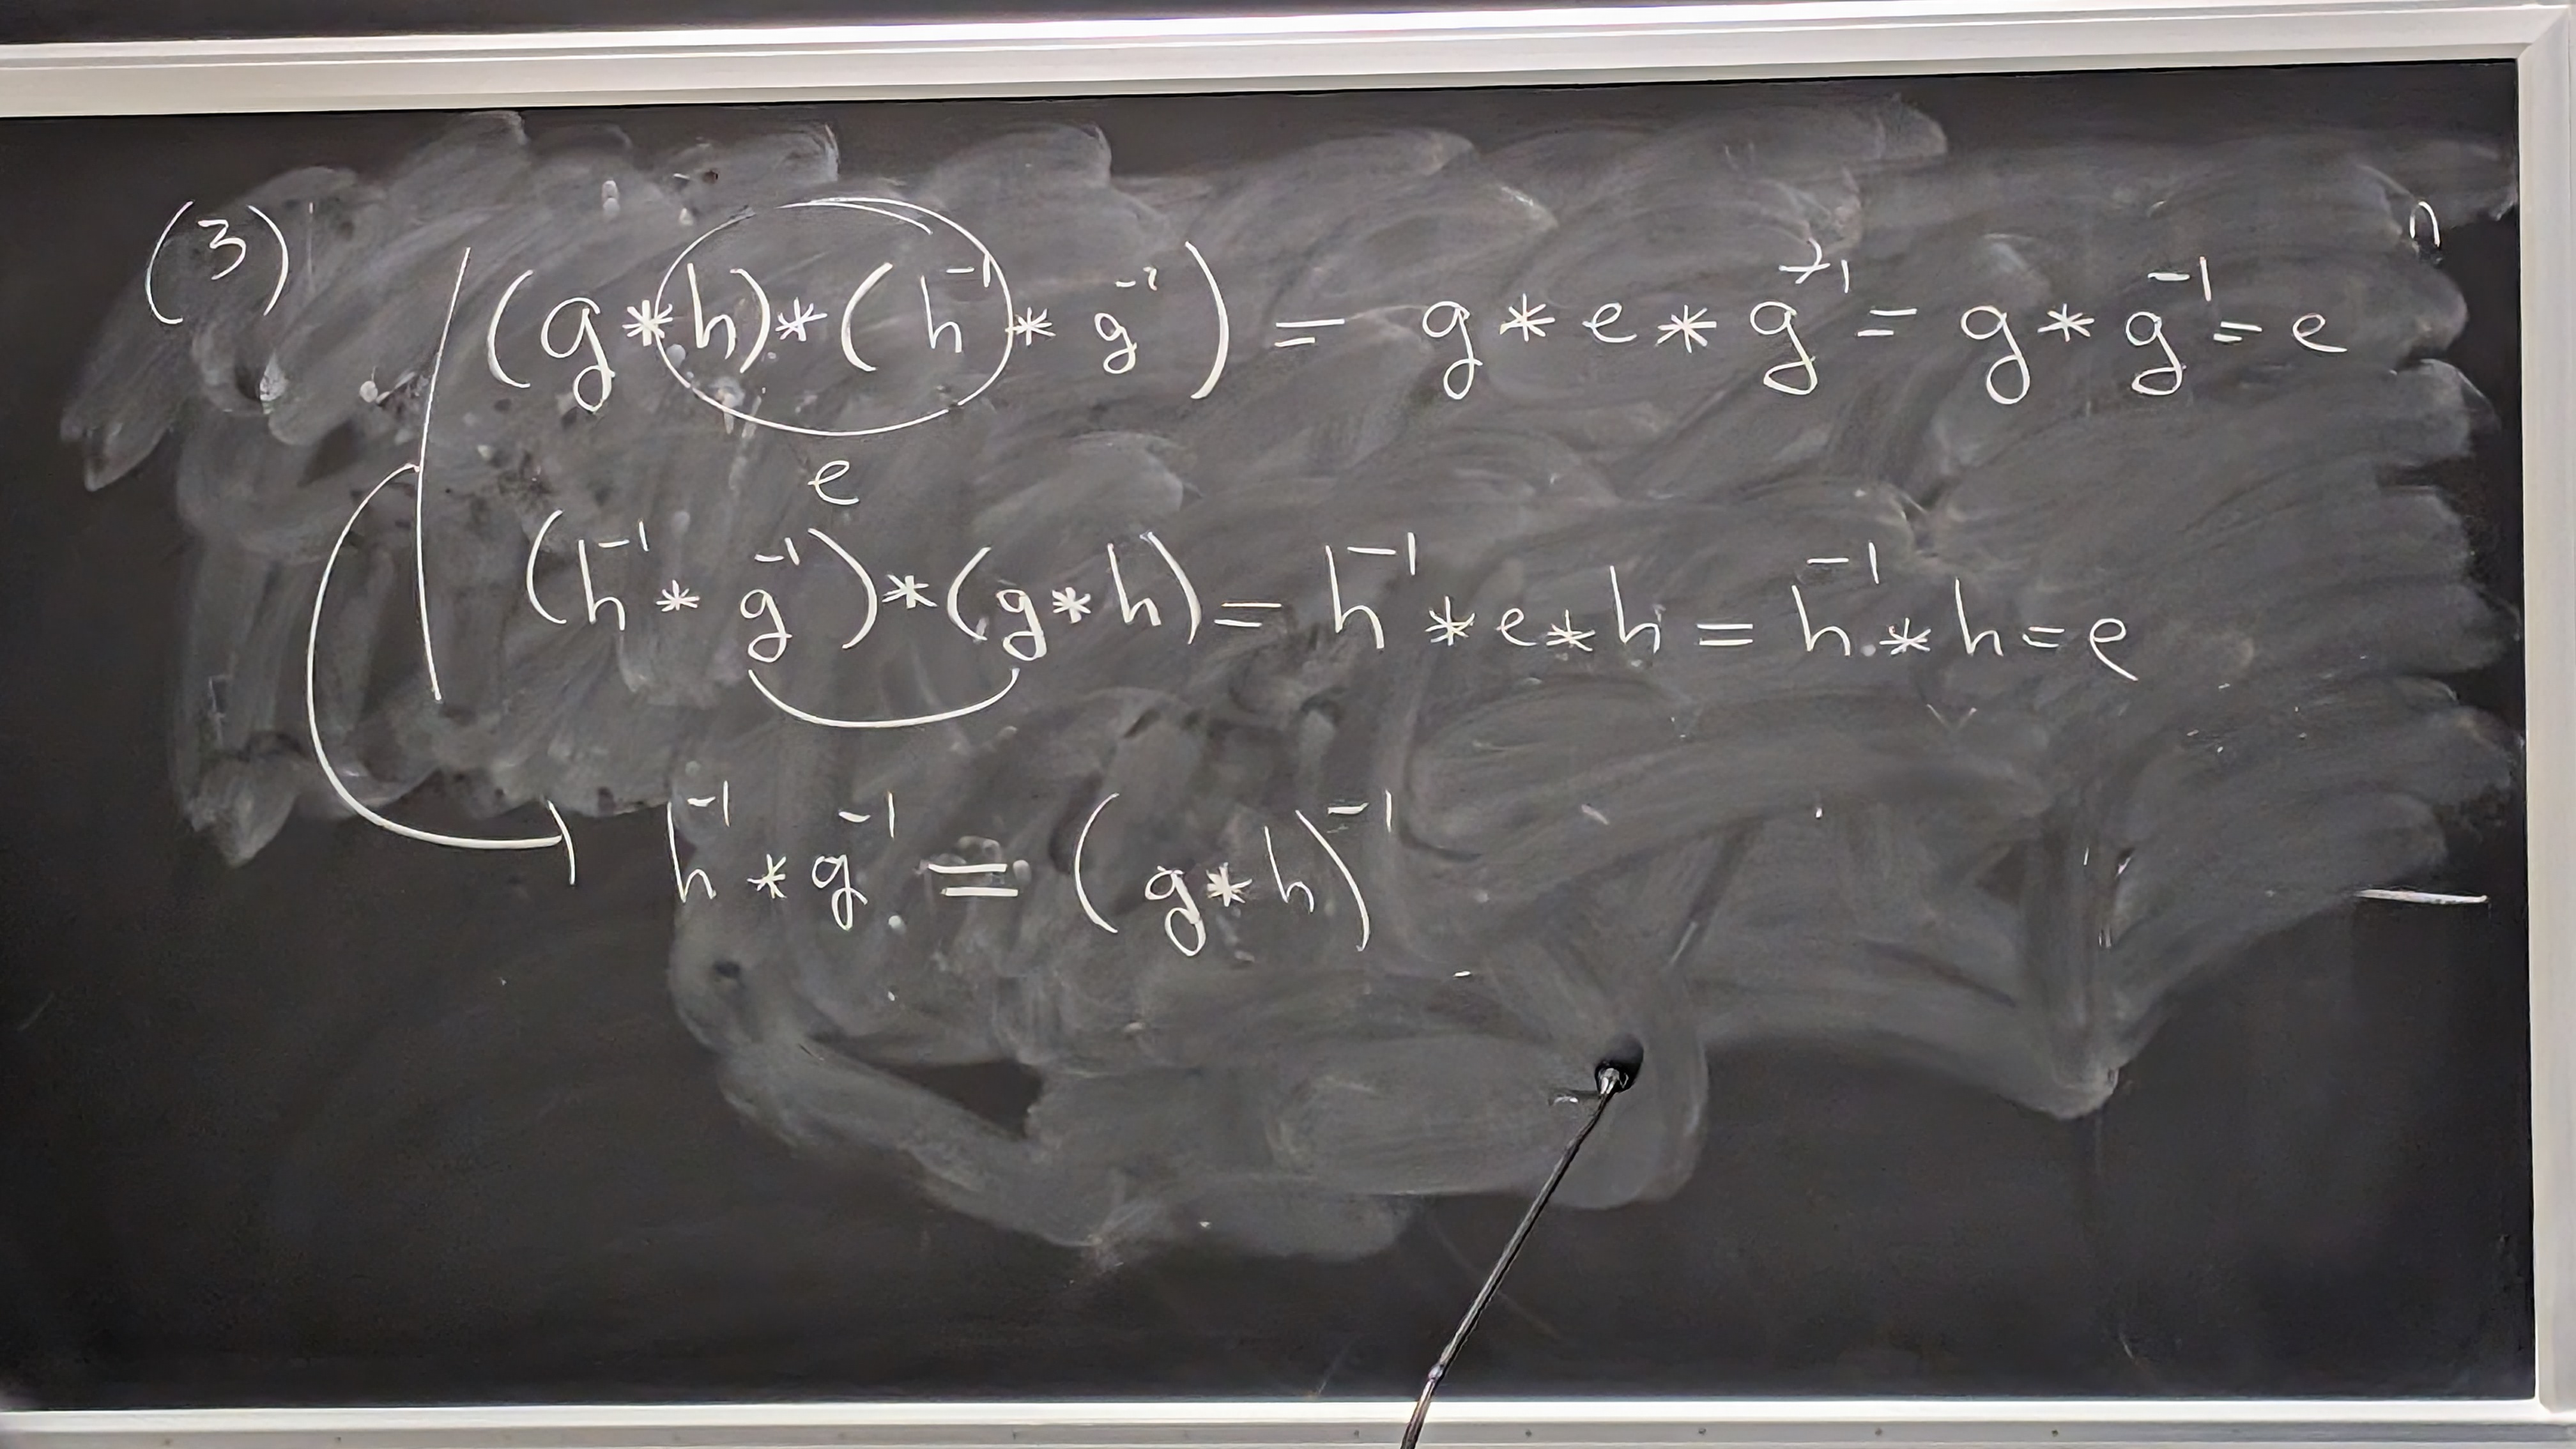 (3) (g*h)*(h⁻¹*g⁻¹) = g*e*g⁻¹ = g*g⁻¹ = e
e
(h⁻¹*g⁻¹)*(g*h) = h⁻¹*e*h = h⁻¹*h = e
h⁻¹*g⁻¹ = (g*h)⁻¹